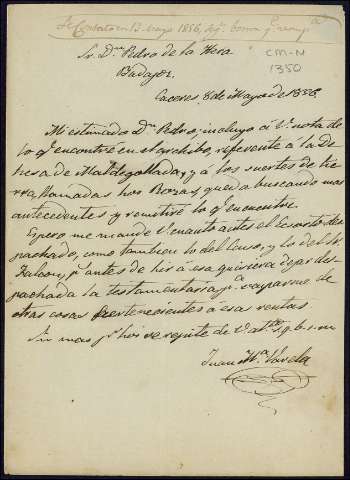 Se Contestó en 13 mayo 1856,
Sr. Dn. Pedro de la Hera
CM-N
Badajoz.
1350
Caceres, 8 de Mayo de 1856.
Mi estimado Dn. Pedro, incluyo á V. nota de
lo qe. encontré en el archibo, referente á la De
hesa de Maldegollada, y á los suertes de tie
rra, llamadas hos Bozas, queda buscando mas
antecedentes y remitiré lo qe. encuentre.
Espero me mande V. cuanto antes el Escrito des
pachado, como tambien lo del Censo, y lo del Sr.
Falcon, pr. antes de hir a esa quisiera dejar des
pachada la testamentaria, pa. ocuparme de
otras cosas pertenecientes á esas rentas
Sin mas pr. hoi se repite de V. at. q. b. s. m.
Juan Ma. Varela